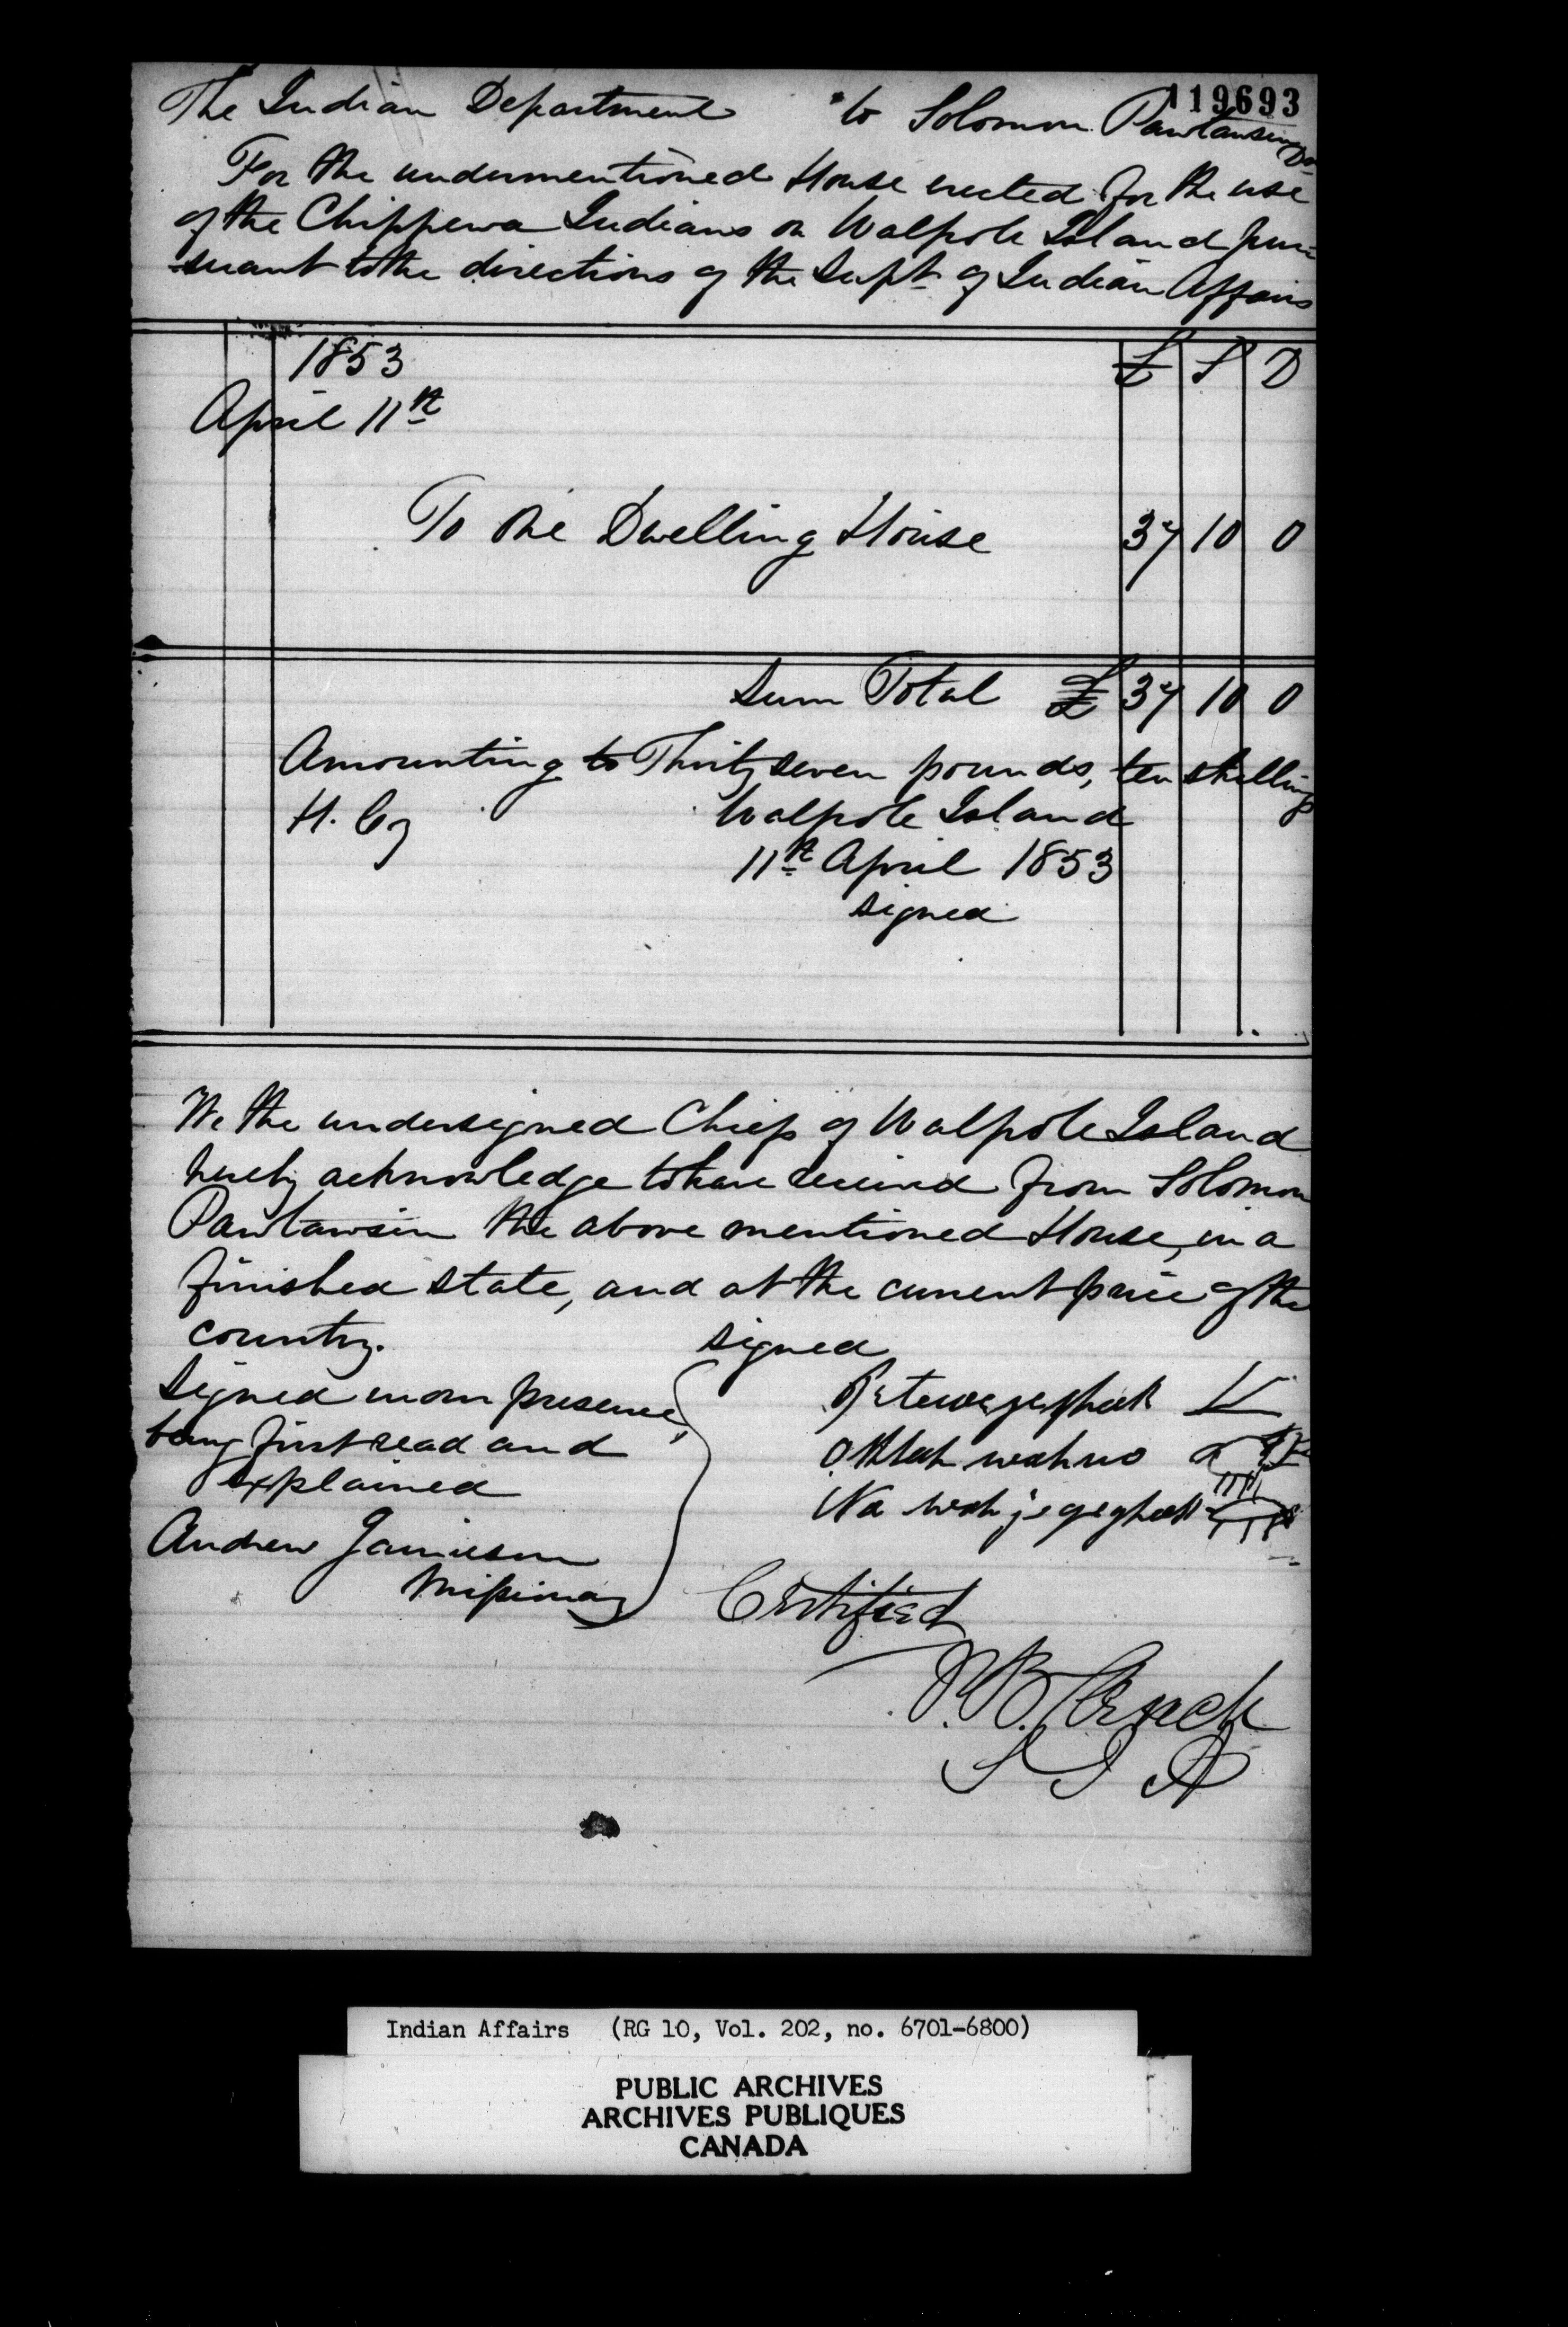 119693
The Indian Department to Solomon Pawtawsin Dr
For the undermentioned House erected for the use
of the Chippewa Indians on Walpole Island pur-
suant to the directions of the Supt of Indian Affairs
1853 £ S D
April 11th
To One Dwelling House 37 10 0
Sum Total £ 37 10 0
Amounting to Thirty seven pounds, ten shillings
H. Cy Walpole Island
11th April 1853
signed
We the undersigned Chiefs of Walpole Island
hereby acknowledge to have received from Solomon
Pawtawsin the above mentioned House, in a
finished state, and at the current price of the
country. signed
Signed in our presence,
being first read and
explained
Andrew Jamieson
Missionary
Certified
J. B. Clench
S I A
Indian Affairs (RG 10, Vol. 202, no. 6701-6800)
PUBLIC ARCHIVES
ARCHIVES PUBLIQUES
CANADA